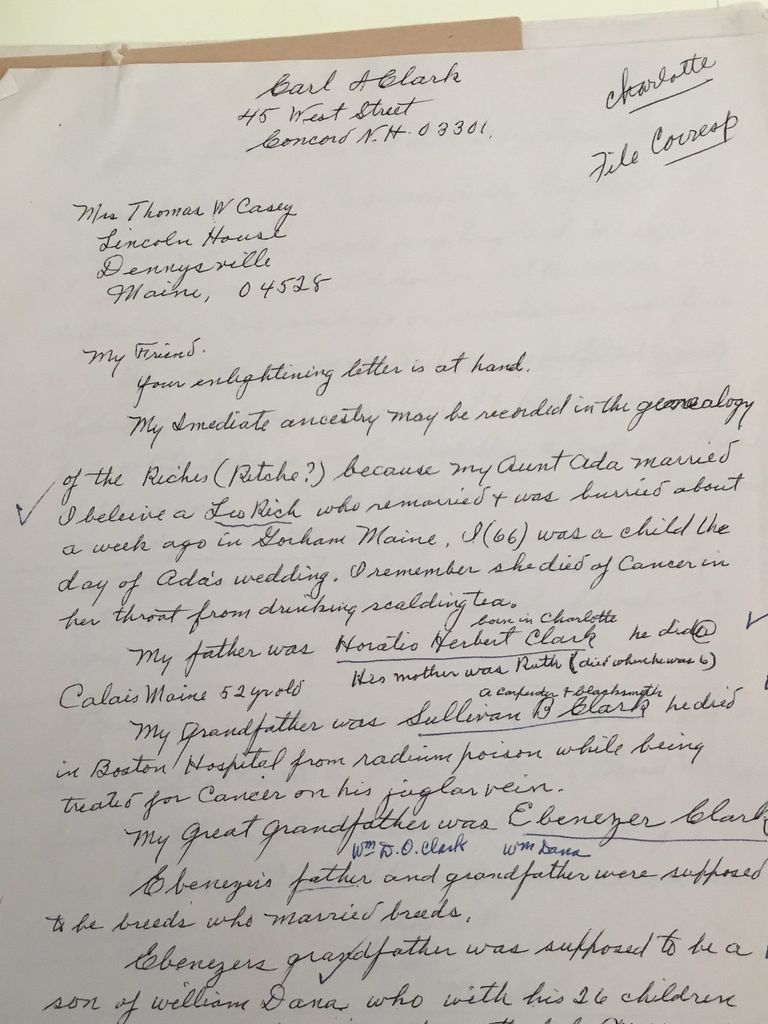 Carl A Clark
45 West Street
Concord N.H. 03301.
Charlotte
File Corresp
Mrs Thomas W Casey
Lincoln House
Dennysville
Maine, 04528
My Friend.
Your enlightining letter is at hand.
My Imediate ancestry may be recorded in the genealogy
of the Riches (Ritche?) because my Aunt Ada married
I beleive a Leo Rich who remarried & was burried about
a week ago in Gorham Maine. I (66) was a child the
day of Ada's wedding. I remember she died of Cancer in
her throat from drinking scalding tea.
born in Charlotte
My father was Horatio Herbert Clark he died @
His mother was Ruth (died when he was 6)
Calais Maine 52 yr old
a carpender & blacksmith
My grandfather was Sullivan B Clark he died
in Boston Hospital from radium poison while being
treated for Cancer on his juglar vein.
My great grandfather was Ebenezer Clark
Wm D.O. Clark Wm Dana
Ebenezers father and grandfather were supposed
to be breeds who married breeds.
Ebenezers grandfather was supposed to be a
son of William Dana who with his 26 children